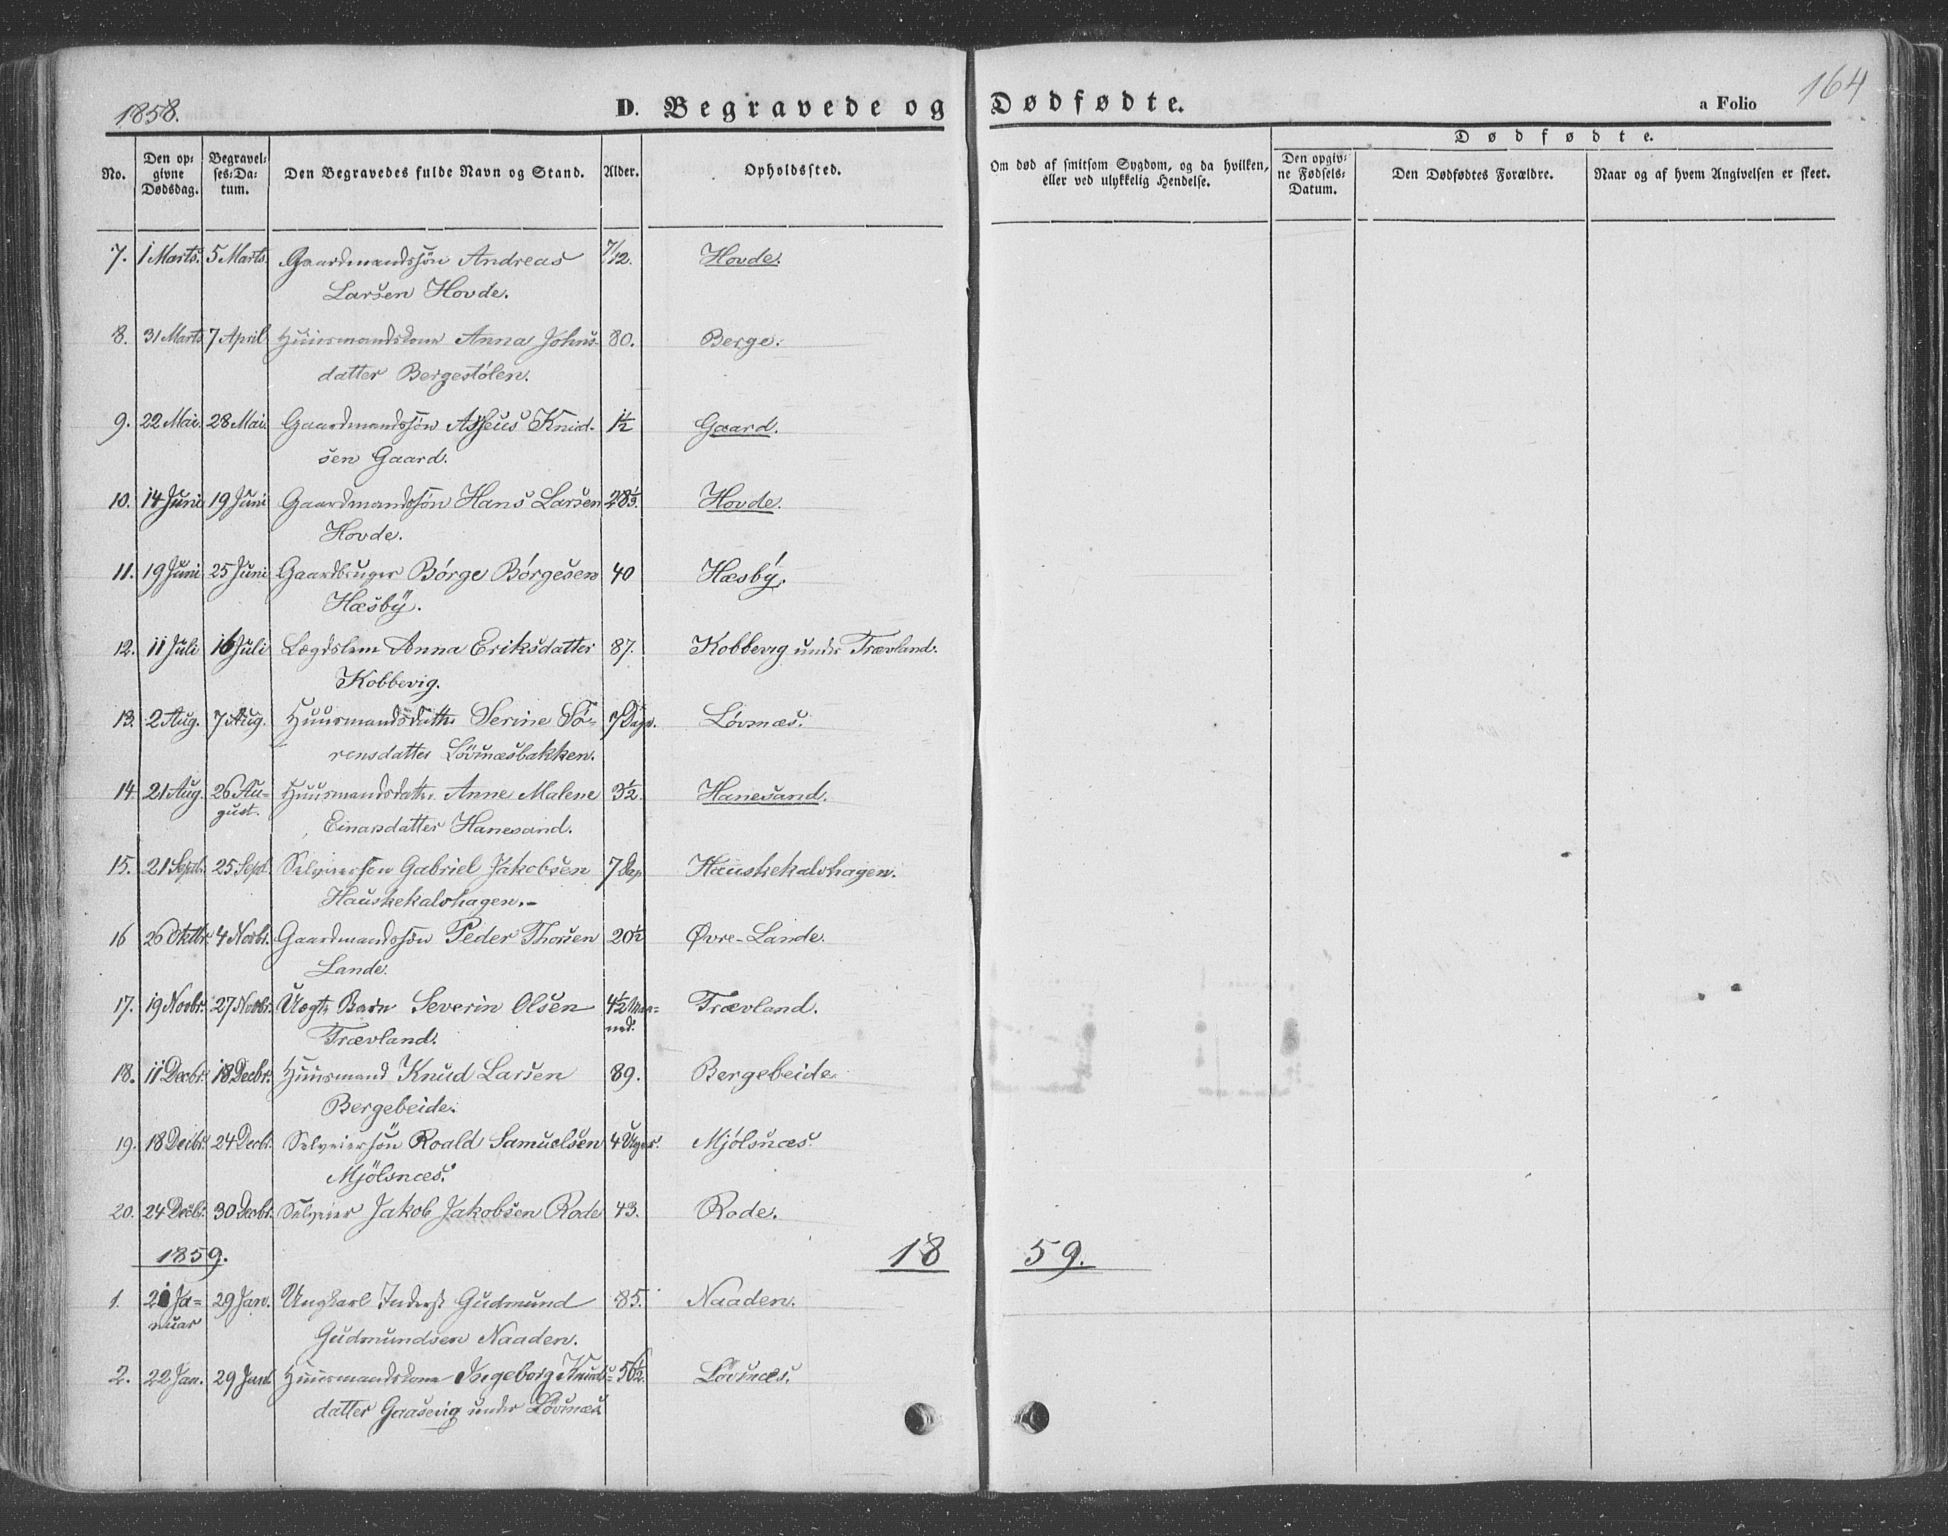 1858.
D. Begravede og Dødfødte.
a Folio 164
No.
Den opgivne Dødsdag.
Begravelses-Datum.
Den Begravedes fulde Navn og Stand.
Alder.
Opholdssted.
Om død af smitsom Sygdom, og da hvilken, eller ved ulykkelig Hendelse.
Dødfødte.
Den opgivne Fødsels-Datum.
Den Dødfødtes Forældre.
Naar og af hvem Angivelsen er skeet.
7. 1 Marts. 5 Marts. Gaardmandssøn Andreas 7/12. Hovde.
Larsen Hovde.
8. 31 Marts 7 April Huusmandskone Anna Johns- 80. Berge.
datter Bergestølen.
9. 22 Mai. 28 Mai. Gaardmandssøn Knud- 1½ Gaard.
sen Gaard.
10. 14 Juni 19 Juni Gaardmandssøn Hans Larsen 28⅓. Hovde.
Hovde.
11. 19 Juni 25 Juni Gaardbruger Børge Børgesen 40 Hæsbÿ.
Hæsbÿ.
12. 11 Juli 16 Juli Lægdslem Anna Eriksdatter 87. Kobbevig under Trævland.
Kobbevig.
13. 2 Aug. 7 Aug. Huusmandsdatt. Serine Sø- 7 Dage. Løvnæs.
rensdatter Løvnæsbakken.
14 21 Aug. 26 Au- Huusmandsdatt. Anne Malene 3½. Hanesand.
gust. Einarsdatter Hanesand.
15. 21 Septb. 25 Sept. Selveiersøn Gabriel Jakobsen 7 Dage Hauskekalvhagen.
Hauskekalvhagen.-
16 26 Oktbr. 4 Novbr. Gaardmandssøn Peder Thorsen 20½ Øvre-Lande.
Lande.
17. 19 Novbr. 27 Novbr. Uægt. Barn Severin Olsen 4½ Maa- Trævland.
Trævland. ned.
18. 11 Decbr. 18 Decbr. Huusmand Knud Larsen 89. Bergebeide.
Bergebeide.
19. 18 Decbr. 24 Decbr. Selveiersøn Roald Samuelsen 4 Uger. Mjølsnæs.
Mjølsnæs.
20. 24 Decbr. 30 Decbr. Selveier Jakob Jakobsen Rode 43. Rode.
1859. 18 59.
1. Ja- 29 Jan. Ungkarl Inderst Gudmund 85. Naaden.
nuar Gudmundsen Naaden.
2. 22 Jan. 29 Jan. Huusmandskone Ingeborg Knuds- 56½. Løvnæs.
datter Gaasevig under Løvnæs